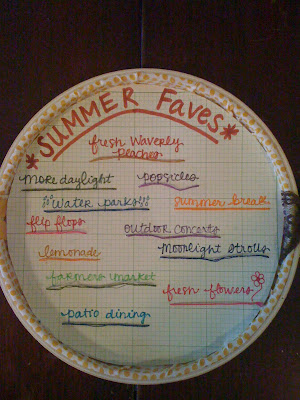 *SUMMER Faves*
fresh Waverly
peaches
more daylight
popsicles
water parks
summer break
flip flops
outdoor concerts
lemonade
moonlight strolls
farmers market
fresh flowers
patio dining